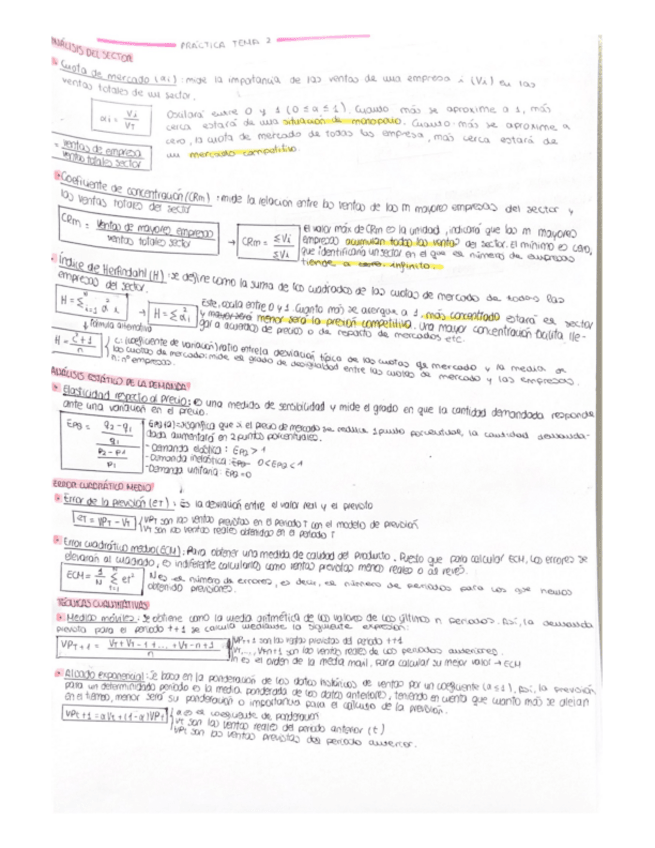 PRÁCTICA TEMA 2
ANÁLISIS DEL SECTOR
Cuota de mercado (αi): mide la importancia de las ventas de una empresa i (Vi) en las
ventas totales de un sector.
αi = Vi / VT
Oscilará entre 0 y 1 (0 ≤ α ≤ 1). Cuanto más se aproxime a 1, más
cerca estará de una situación de monopolio. Cuanto más se aproxime a
cero, la cuota de mercado de todas las empresa, más cerca estará de
un mercado competitivo.
= ventas de empresa / ventas totales sector
Coeficiente de concentración (CRm): mide la relación entre las ventas de las m mayores empresas del sector y
las ventas totales del sector
CRm = ventas de mayores empresas / ventas totales sector → CRm = ΣVi / ΣVi
El valor máx de CRm es la unidad, indicará que las m mayores
empresas acumulan todas las ventas del sector. El mínimo es cero,
que identificaría un sector en el que el número de empresas
tiende a infinito.
Índice de Herfindahl (H): se define como la suma de los cuadrados de las cuotas de mercado de todas las
empresas del sector.
Este, oscila entre 0 y 1. Cuanto más se acerque a 1, más concentrado estará el sector
y mayor será menor será la presión competitiva. Una mayor concentración facilita lle-
gar a acuerdos de precios o de reparto de mercados etc.
↓ Fórmula alternativa
H = c² + 1 / n
c: (coeficiente de variación) ratio entre la desviación típica de las cuotas de mercado y la media de
las cuotas de mercado: mide el grado de desigualdad entre las cuotas de mercado y las empresas.
n: nº empresas.
ANÁLISIS ESTÁTICO DE LA DEMANDA
Elasticidad respecto al precio: es una medida de sensibilidad y mide el grado en que la cantidad demandada responde
ante una variación en el precio.
significa que si el precio de mercado se reduce 1 punto porcentual, la cantidad demanda-
dada aumentará en 2 puntos porcentuales.
- Demanda elástica: Epd > 1
- Demanda inelástica: 0 < Epd < 1
- Demanda unitaria: Epd = 0
ERROR CUADRÁTICO MEDIO
Error de la previsión (eT): Es la desviación entre el valor real y el previsto
eT = VPT - VT
VPT son las ventas previstas en el periodo T con el modelo de previsión
VT son las ventas reales obtenidas en el periodo T
Error cuadrático medio (ECM): Para obtener una medida de calidad del producto. Puesto que para calcular ECM, los errores se
elevarán al cuadrado, es indiferente calcularlos como ventas previstas menos reales o al revés.
N es el número de errores, es decir, el número de periodos para los que hemos
obtenido previsiones.
TÉCNICAS CUANTITATIVAS
Medias móviles: se obtiene como la media aritmética de los valores de los últimos n periodos. Así, la demanda
prevista para el periodo t+1 se calcula mediante la siguiente expresión:
VPT+1 = VT + VT-1 + ... + VT-n+1 / n
VPT+1 son las ventas previstas del periodo t+1
son las ventas reales de los periodos anteriores.
n es el orden de la media móvil, para calcular su mejor valor → ECM
Alisado exponencial: Se basa en la ponderación de los datos históricos de ventas por un coeficiente (α ≤ 1), Así, la previsión
para un determinado periodo es la media ponderada de los datos anteriores, teniendo en cuenta que cuanto más se alejan
en el tiempo, menor será su ponderación o importancia para el cálculo de la previsión.
VPt+1 = αVt + (1-α)VPt
α es el coeficiente de ponderación
Vt son las ventas reales del periodo anterior (t)
VPt son las ventas previstas del periodo anterior.